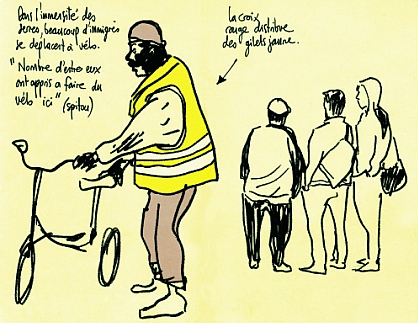 Dans l'immensité des
serres, beaucoup d'immigrés
se deplacent à vélo.
"Nombre d'entre eux
ont appris a faire du
vélo ici" (Spitou)
La croix
rouge distribue
des gilets jaune.